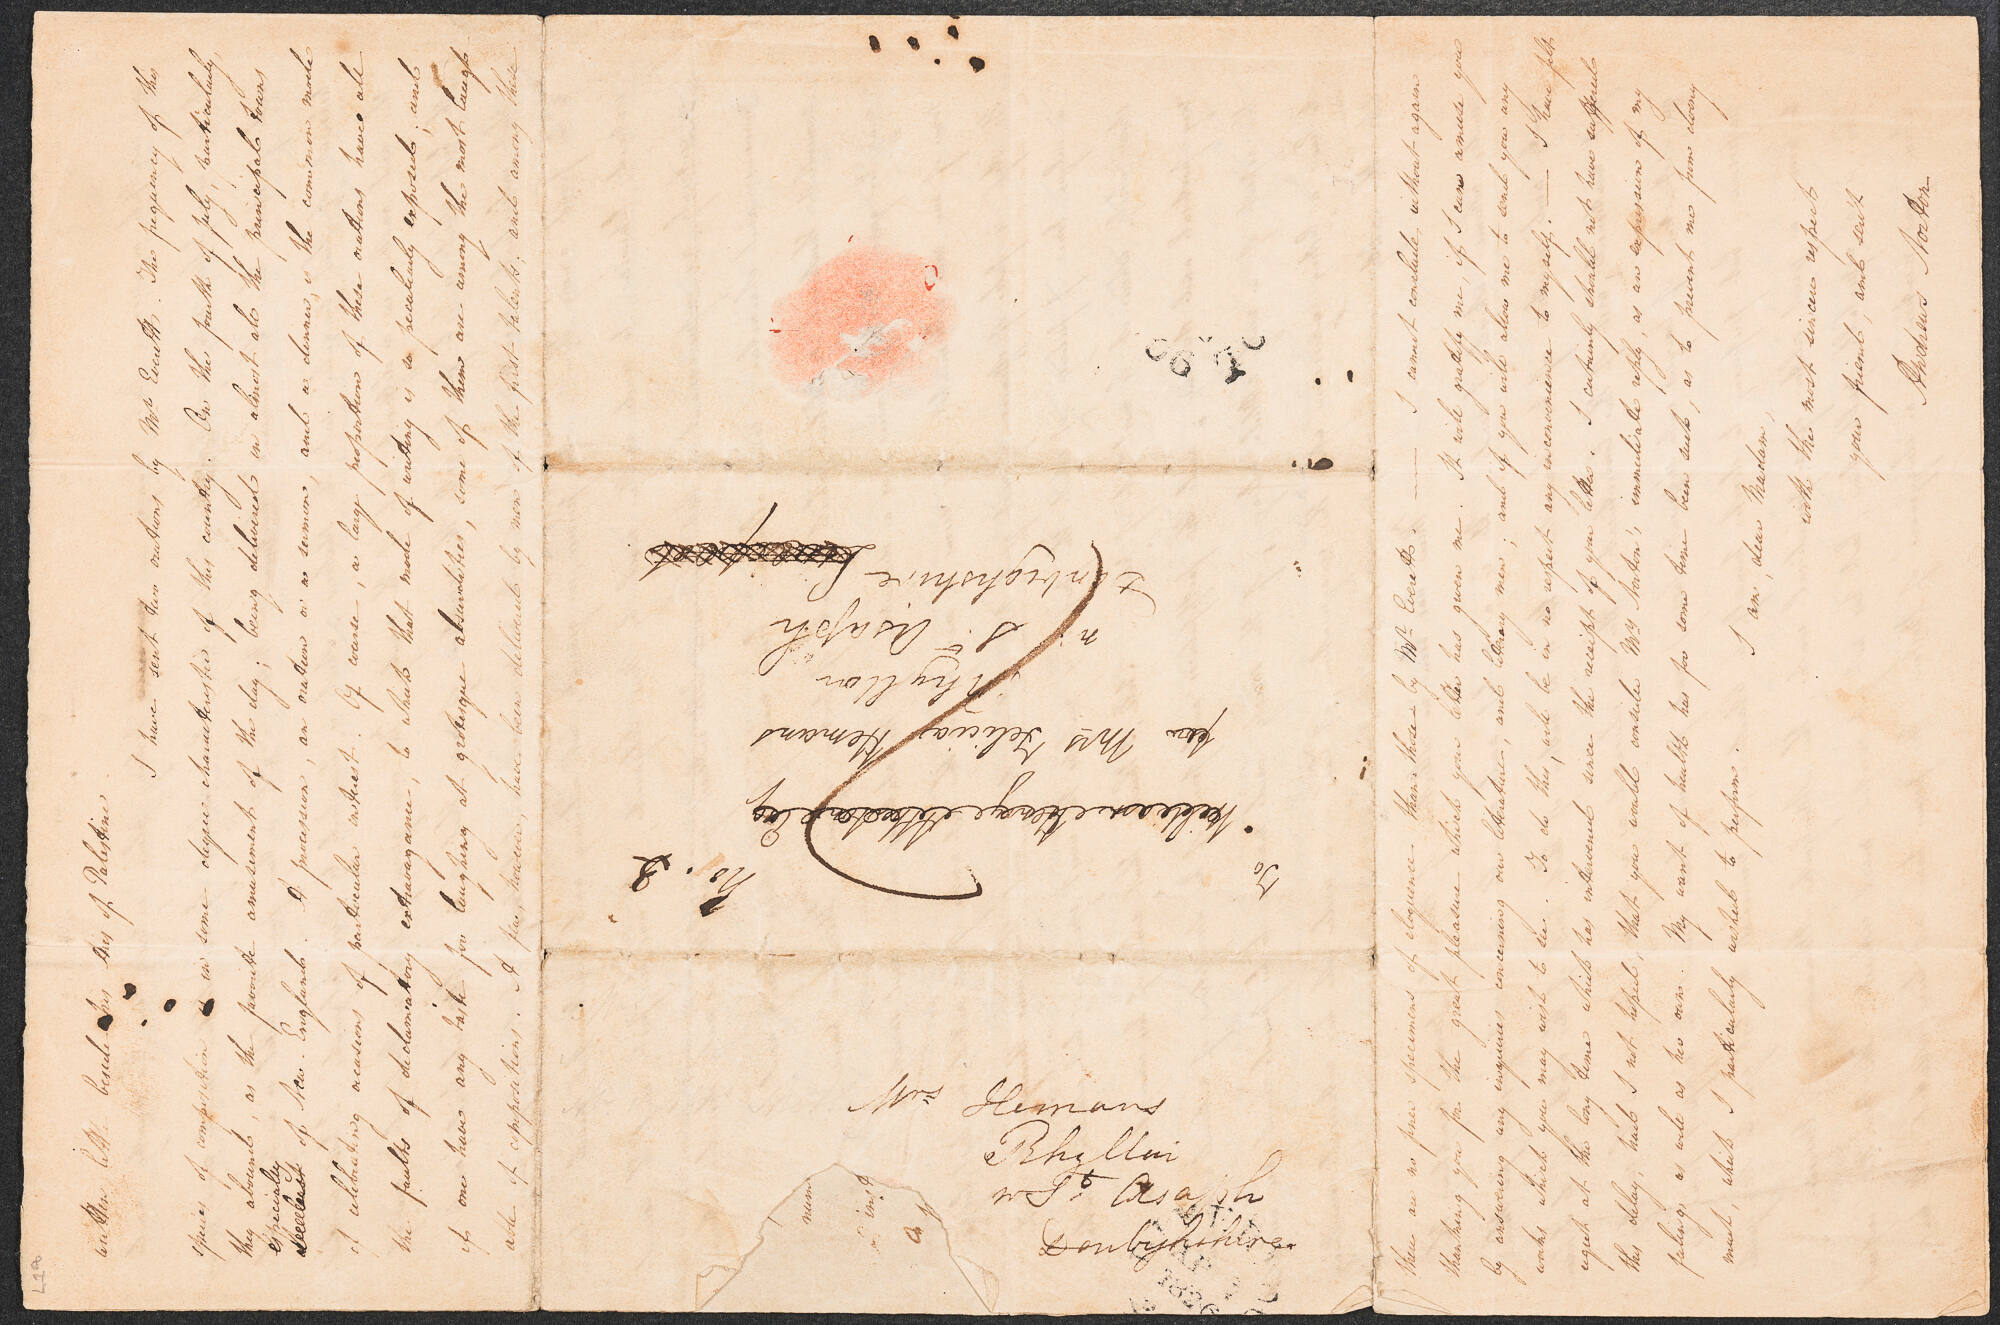 written little beside his of Palestine.
I have sent two orations by Mr. Everett. The frequency of this
species of composition is in some degree characteristic of this country. On the fourth of July, particularly,
they abound, as the favorite amusement of the day; being delivered in almost all the principal towns
especially
of New-England. A procession, an oration or a sermon, and a dinner, is the common mode
of celebrating occasions of particular interest. Of course, a large proportion of these orations have all
the faults of declamatory extravagance, to which that mode of writing is so peculiarly exposed; and
if one have any taste for laughing at grotesque absurdities, some of them are among the most laugh-
able of expositions. A few, however, have been delivered by men of the first talents; and among these
there are no finer specimens of eloquence than those by Mr. Everett. — I cannot conclude without again
thanking you for the great pleasure which your letter has given me. It will gratify me, if I can amuse you
by answering any inquiries concerning our literature, and literary men; and if you will allow me to send you any
works which you may wish to see. To do this, will be in no respect any inconvenience to myself. — I have felt
regret at the long time which has intervened since the receipt of your letter. I certainly should not have suffered
this delay, had I not hoped, that you would consider Mrs. Norton's immediate reply, as an expression of my
feelings as well as her own. My want of health has for some time been such, as to prevent me from doing
much, which I particularly wished to perform.
I am, dear Madam,
with the most sincere respect
your friend, and servt
Andrews Norton
No. 2
To
for Mrs Felicia Hemans
Rhyllon
nr. St. Asaph
Denbighshire
Mrs Hemans
Rhyllon
nr St Asaph
Denbighshire
L19